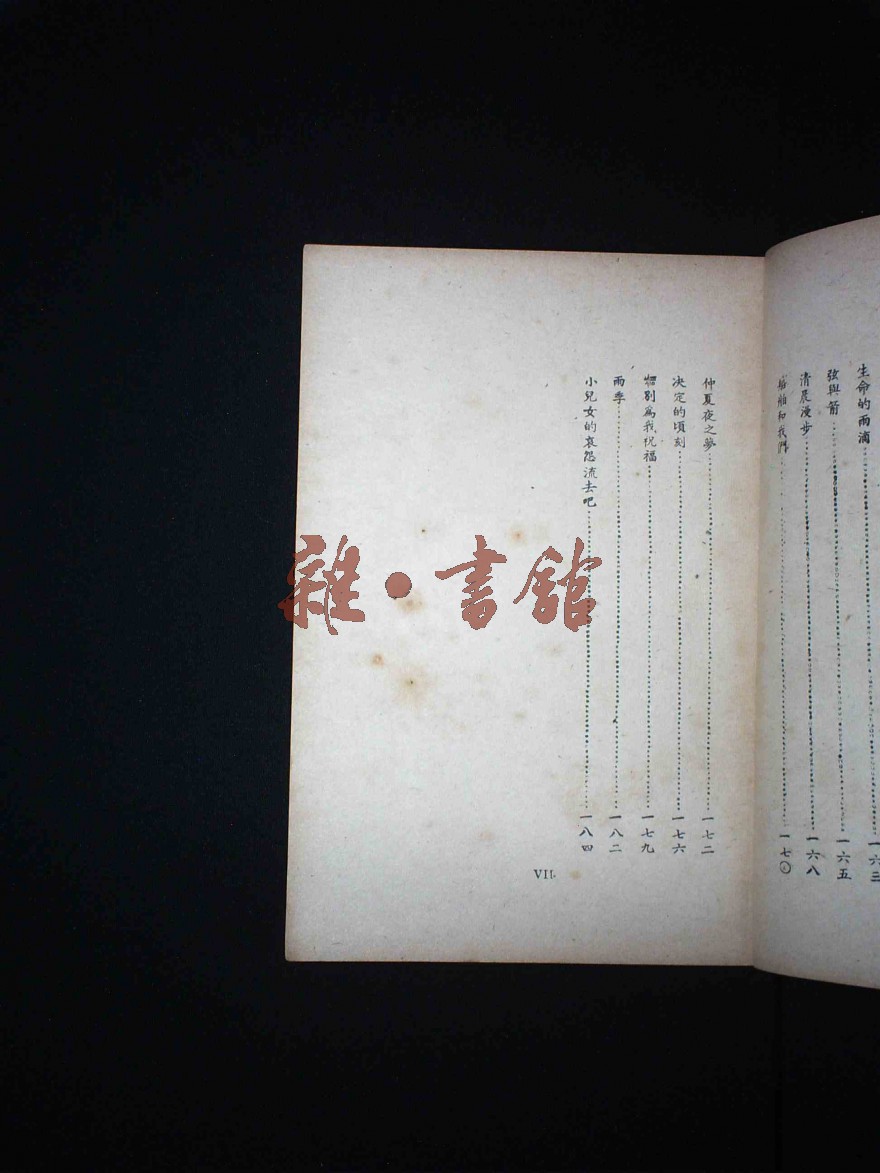 生命的雨滴……一六三
弦與箭……一六五
清晨漫步……一六八
船舶和我們……一七〇
仲夏夜之夢……一七二
决定的頃刻……一七六
別為我祝福……一七九
雨季……一八二
小兒女的哀怨流去吧……一八四
VII
雜·書館